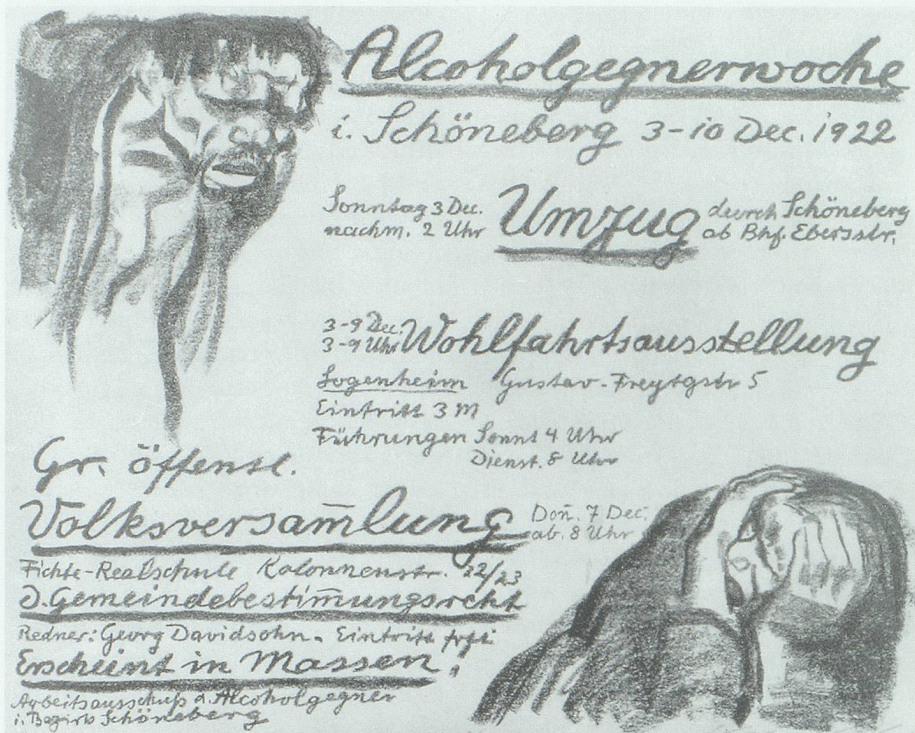 Alcoholgegnerwoche
i. Schöneberg 3-10 Dec. 1922
Sonntag 3 Dec.
nachm. 2 Uhr
Umzug
durch Schöneberg
ab Bhf. Ebersstr.
3-9 Dec.
3-9 Uhr
Wohlfahrtsausstellung
Logenheim Gustav-Freytgstr 5
Eintritt 3 M
Führungen Sonnt 4 Uhr
Dienst. 8 Uhr
Gr. öffentl.
Volksversam̄lung
Don̄. 7 Dec.
ab. 8 Uhr
Fichte-Realschule Kolonnenstr. 22/23
d. Gemeindebestim̄ungsrecht
Redner: Georg Davidsohn - Eintritt frei
Erscheint in Massen!
Arbeitsausschuß d. Alcoholgegner
i. Bezirk Schöneberg